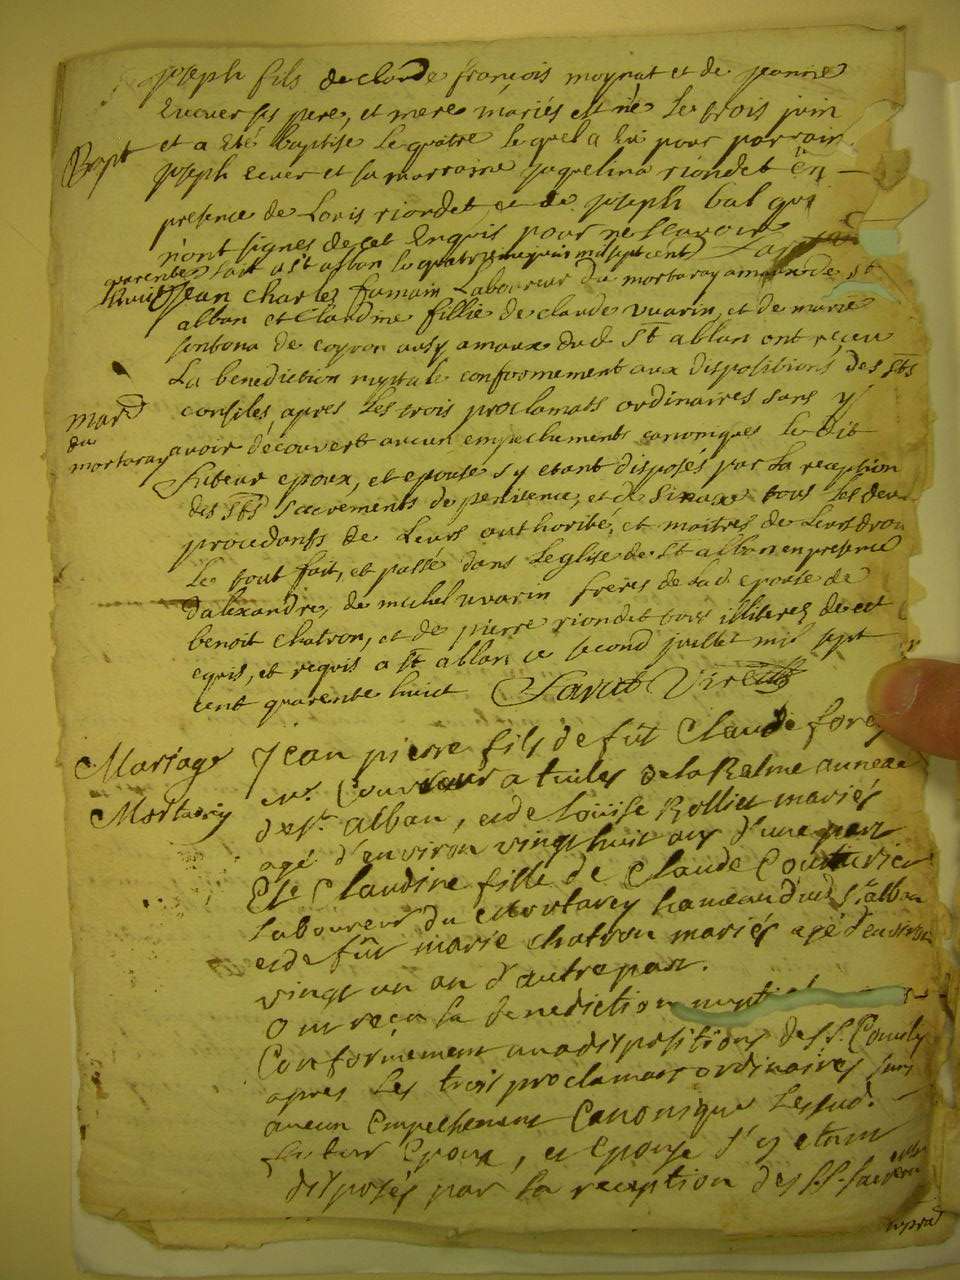 joseph fils de claude françois moynat et de jeanne
ses pere, et mere mariés est né Le trois juin
Bapt et a été baptise Le quatre Lequel a Eu pour parrain
joseph et sa marraine jaquelina riondet En
presence de Louis riondet, et de joseph bal qui
n'ont signes de cet Enquis pour ne scavoir
quarente huit fait a st alban le quatrieme juin mil sept cent
jean charles fumain Laboureur du mortaray de st
alban et Claudine fillie de claude vuarin, et de marie
de coyron aussy dud St alban ont receu
La benediction nuptiale conformement aux dispositions des sts
mard consiles apres Les trois proclamats ordinaires sans y
du mortaray avoir découvert aucun empechements canoniques le dit
futeur epoux, et epouse s'y etant disposés par La reception
des sts sacrements de penitence, et de tous Les deux
procedants de Leurs authorité, et maitres de Leurs droi
Le tout fait, et passé dans Leglise de St alban en presence
d'alexandre, de michel vuarin freres de Lad epouse de
benoit chatron, et de pierre riondet tous illiteres de cet
eqris, et requis a st alban ce second juillet mil sept
cent quarente huict
Mariage Jean pierre fils de fût Claude
Mortarey Couvreur a tuiles de la Balme
de st alban, et de Loüise Rollier mariés
agé d'environ vingt huit ans d'une part
Et Claudine fille de Claude Couturier
Laboureur du Mortarey hameau dud St alban
et de fût marie chatron mariés agé d'environ
vingt un an d'autre part.
Ont reçu la benediction
Conformement aux dispositions des SS. Conciles
apres Les trois proclamats ordinaires sans
aucun Empechement Canonique Lesfud.
futur Epoux, et Epouse s'y etant
disposés par la reception des SS. Sacremen